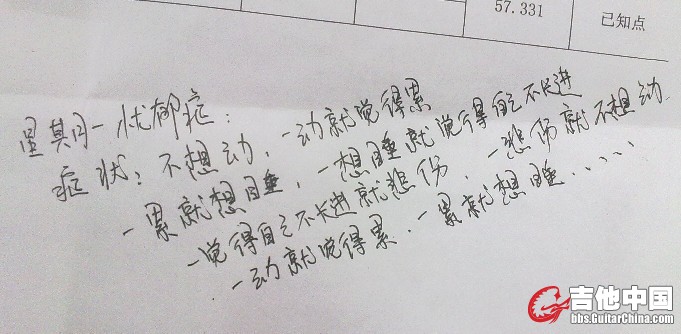 57.331 已知点
星期一忧郁症：
症状：不想动、一动就觉得累
一累就想睡，一想睡就觉得自己不长进
一觉得自己不长进就悲伤、一悲伤就不想动
一动就觉得累、一累就想睡......
吉他中国
bbs.GuitarChina.com